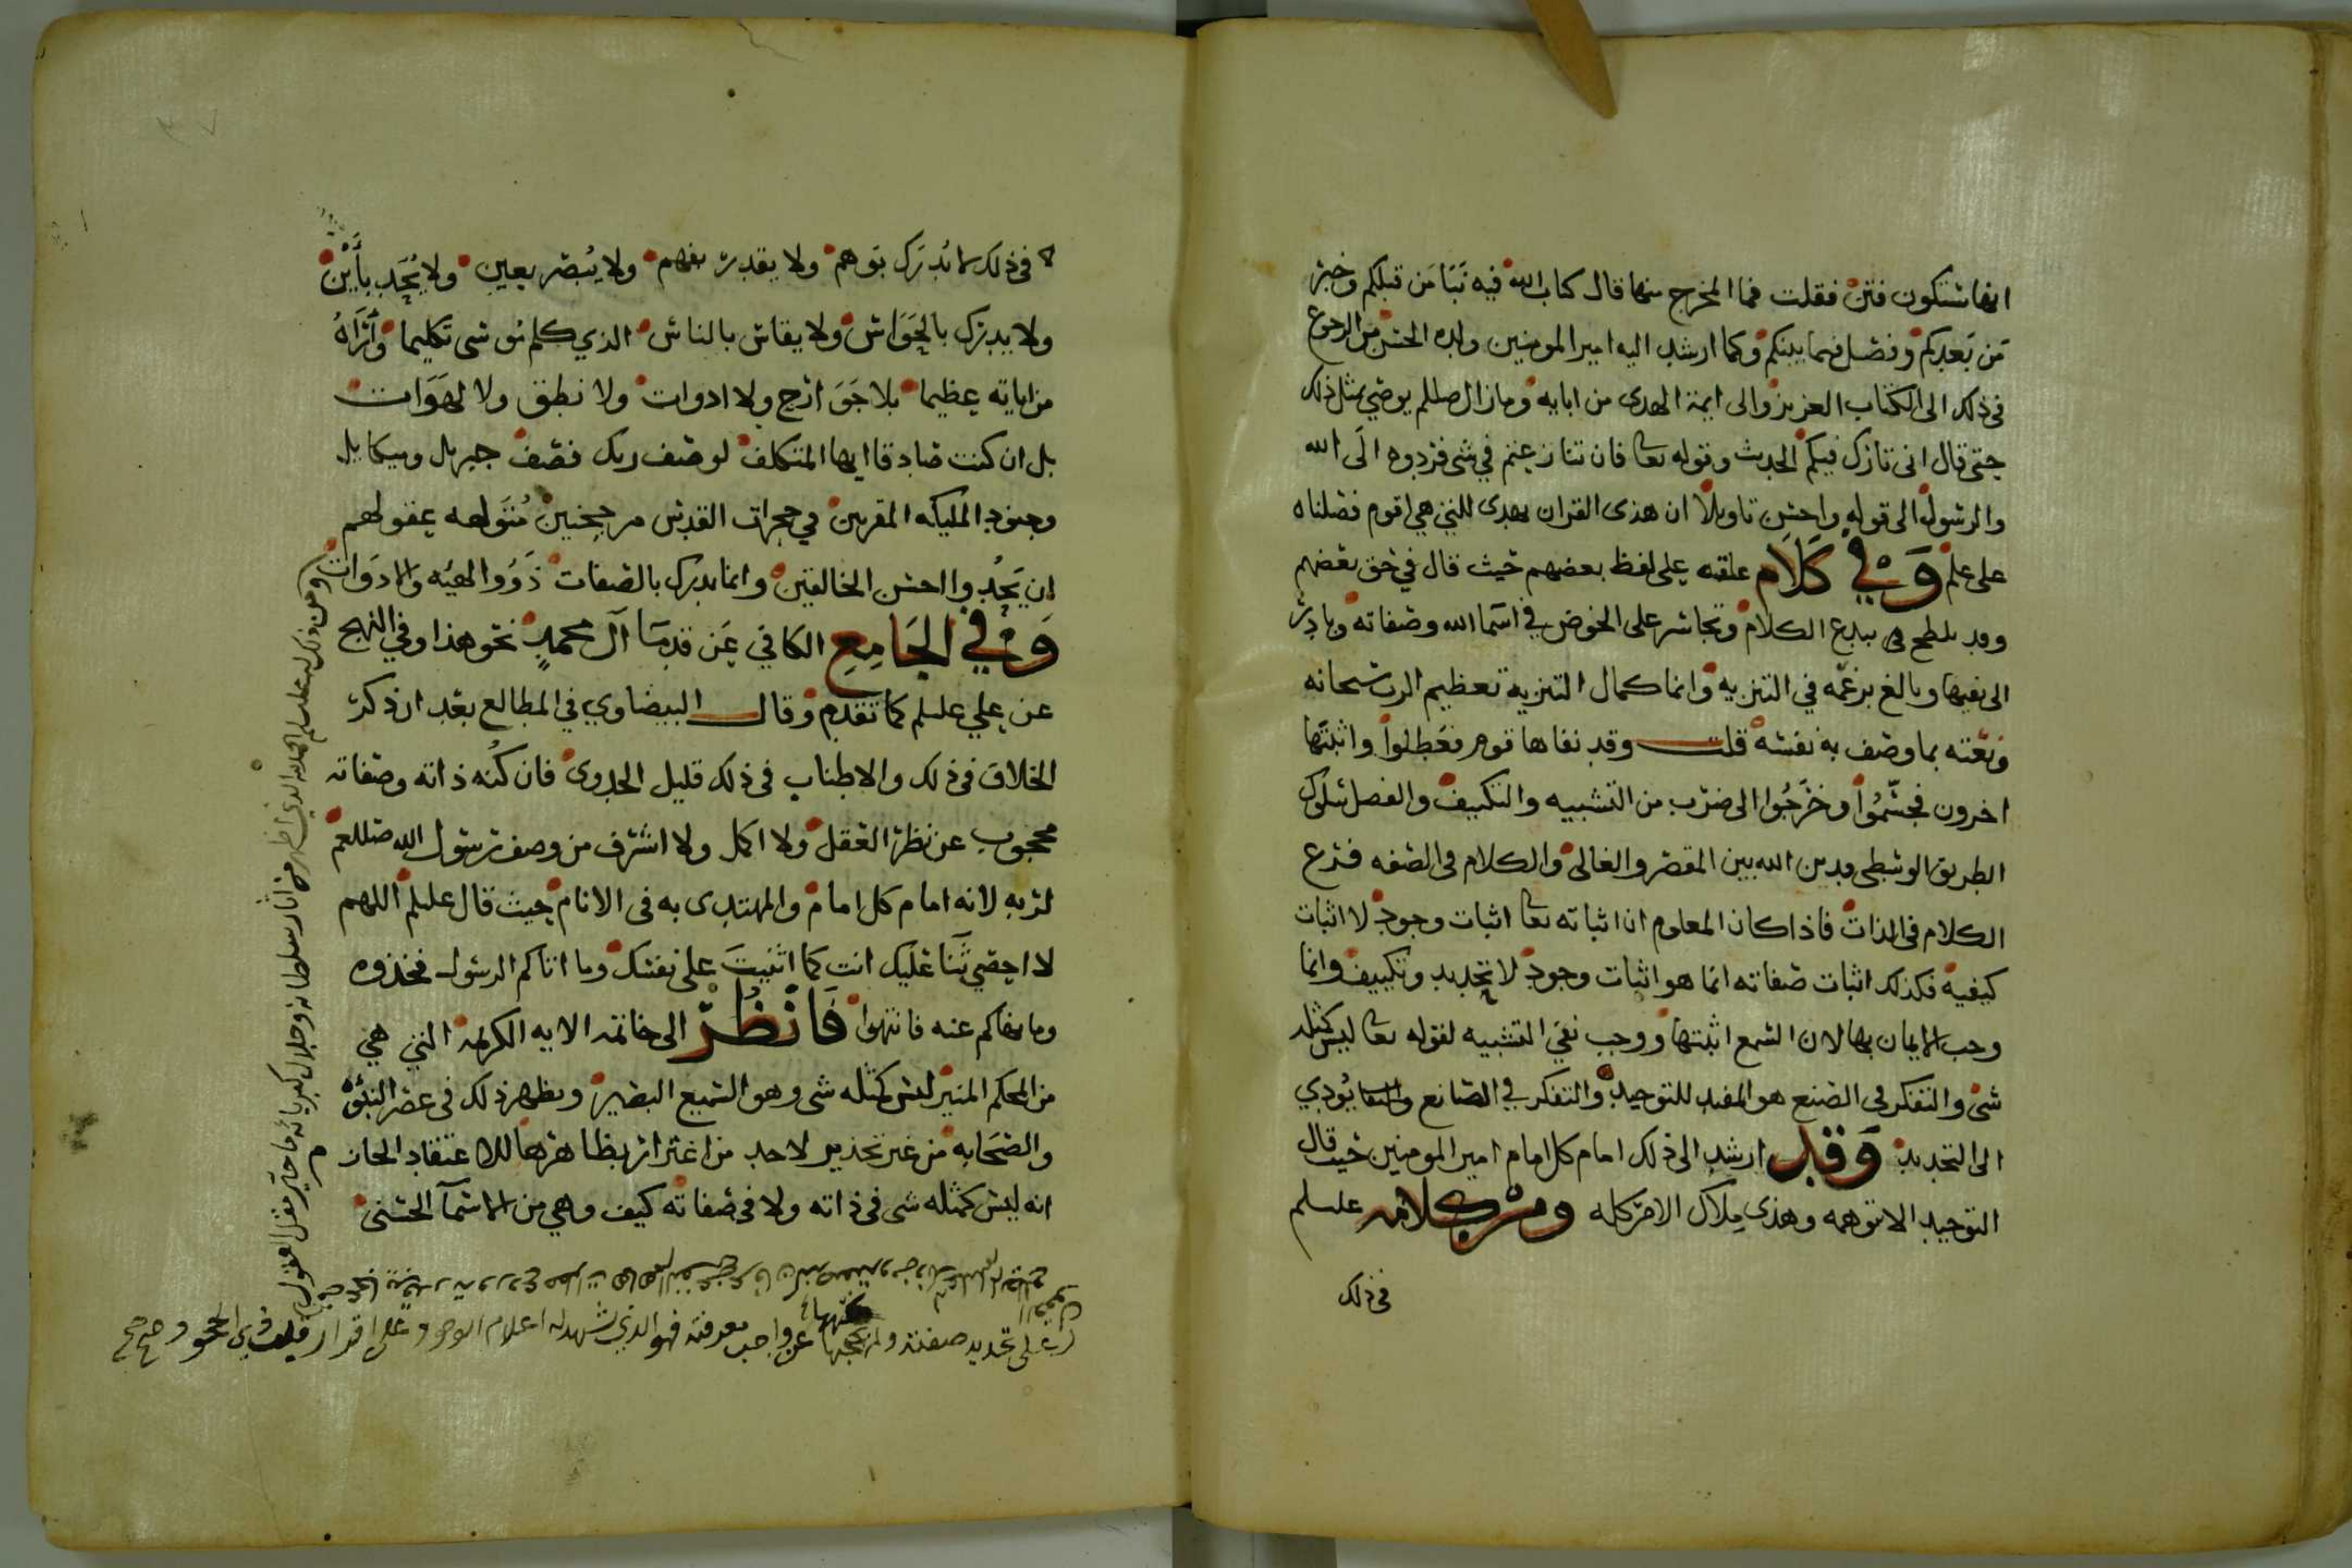 انها ستكون فتن فقلت فما المخرج منها قال كتاب الله فيه نَبَا مَن قبلكم وخبر
مَن بَعدكم وفصل فيما بينكم وكما ارشد اليه امير المومنين ولده الحسن من الرجوع
في ذلك الى الكتاب العزيز والى ايمة الهدى من ابايه وما زال صللم يوصي بمثل ذلك
حتى قال انى تارك فيكم الحديث وقوله تعا فان تنازعتم في شى فردوه الى الله
والرسول الى قوله واحسن تاويلا ان هذى القران يهدى للتي هي اقوم فصلناه
على علم وَفي كَلَامٍ علقته على لفظ بعضهم حيث قال في حق بعضهم
وقد تلطخ ببدع الكلام وتجاسر على الخوض في اسما الله وصفاته وبادر
الى نفيها وبالغ بزعمه في التنزيه وانما كمال التنزيه تعظيم الرب سبحانه
ونعته بما وصف به نفسه قلت وقد نفاها قوم فعَطلوا واثبتها
اخرون فجسّمُوا وخَرَجُوا الى ضرب من التشبيه والتكييف والفصل سلوك
الطريق الوسطى ودين الله بين المقصر والغالى والكلام في الصفه فرع
الكلام في الذات فاذا كان المعلوم ان اثباته تعا اثبات وجود لا اثبات
كيفية فكذلك اثبات صفاته انما هو اثبات وجود لا تحديد وتكييف وانما
وجب الايمان بها لان السمع اثبتها ووجب نفي التشبيه لقوله تعا ليس كمثله
شى والتفكر في الصنع هو المفيد للتوحيد والتفكر في الصانع يُودي
الى التحديد وَقد ارشد الى ذلك امام كل امام امير المومنين حيث قال
التوحيد الا تتوهمه وهذى مِلاك الامر كله ومن كلامه علسلم
في ذلك
في ذلك لا يُدرَك بوهم ولا يقدر بفهم ولا يُبصر بعين ولا يُحَد بأَيْن
ولا يدرك بالحَوَاس ولا يقاس بالناس الذي كلم موسى تكليما وَأَرَاهُ
من اياته عظيما بلا جَوَارح ولا ادوات ولا نطق ولا لهَوَات
بل ان كنت صادقا ايها المتكلف لوصف ربك فصف جبريل وميكايل
وجنود المليكه المقربين في حجرات القدس مرجحنين مُتَولهه عقولهم
ان يَحُدوا احسن الخالقين وانما يدرك بالصفات ذَوُوا الهيئه والادَوَات
وَفي الجَامِعِ الكافي عَن قدمَا آل محمدٍ نحو هذا وفي النهج
عن علي علسلم كما تقدم وقال البيضاوي في المطالع بعد ان ذكر
الخلاف في ذلك والاطناب في ذلك قليل الجدوى فان كُنه ذاته وصفاته
محجوب عن نظر العقل ولا اكمل ولا اشرف من وصف رسول الله صللعم
لربه لانه امام كل امام والمهتدى به في الانام حيث قال علسلم اللهم
لا احصي ثَنَا عَليك انت كما اثنيتَ على نفسك وما اتاكم الرسول فخذوه
وما نهاكم عنه فانتهوا فَانْظُرْ الى خاتمه الايه الكريمه التي هي
من المحكم المنير ليس كمثله شى وهو السميع البصير ويظهر ذلك في عصر النبُوَّه
والصَحَابه من غير تحذير لاحد من اغترار بظاهرها للاعتقاد الحاز م
انه ليس كمثله شى في ذاته ولا في صفاته كيف وهي من الاسمآ الحسنى
ومن ذلك علسلم الحمد لله الذي اظهر من اثار سلطانه وجلال كبريائه ما حير مقل العقول
على تحديد صفته ولم يحجبها عن واجب معرفته فهو الذي تشهد له اعلام الوجود على اقرار قلب ذي الجحود صح صح